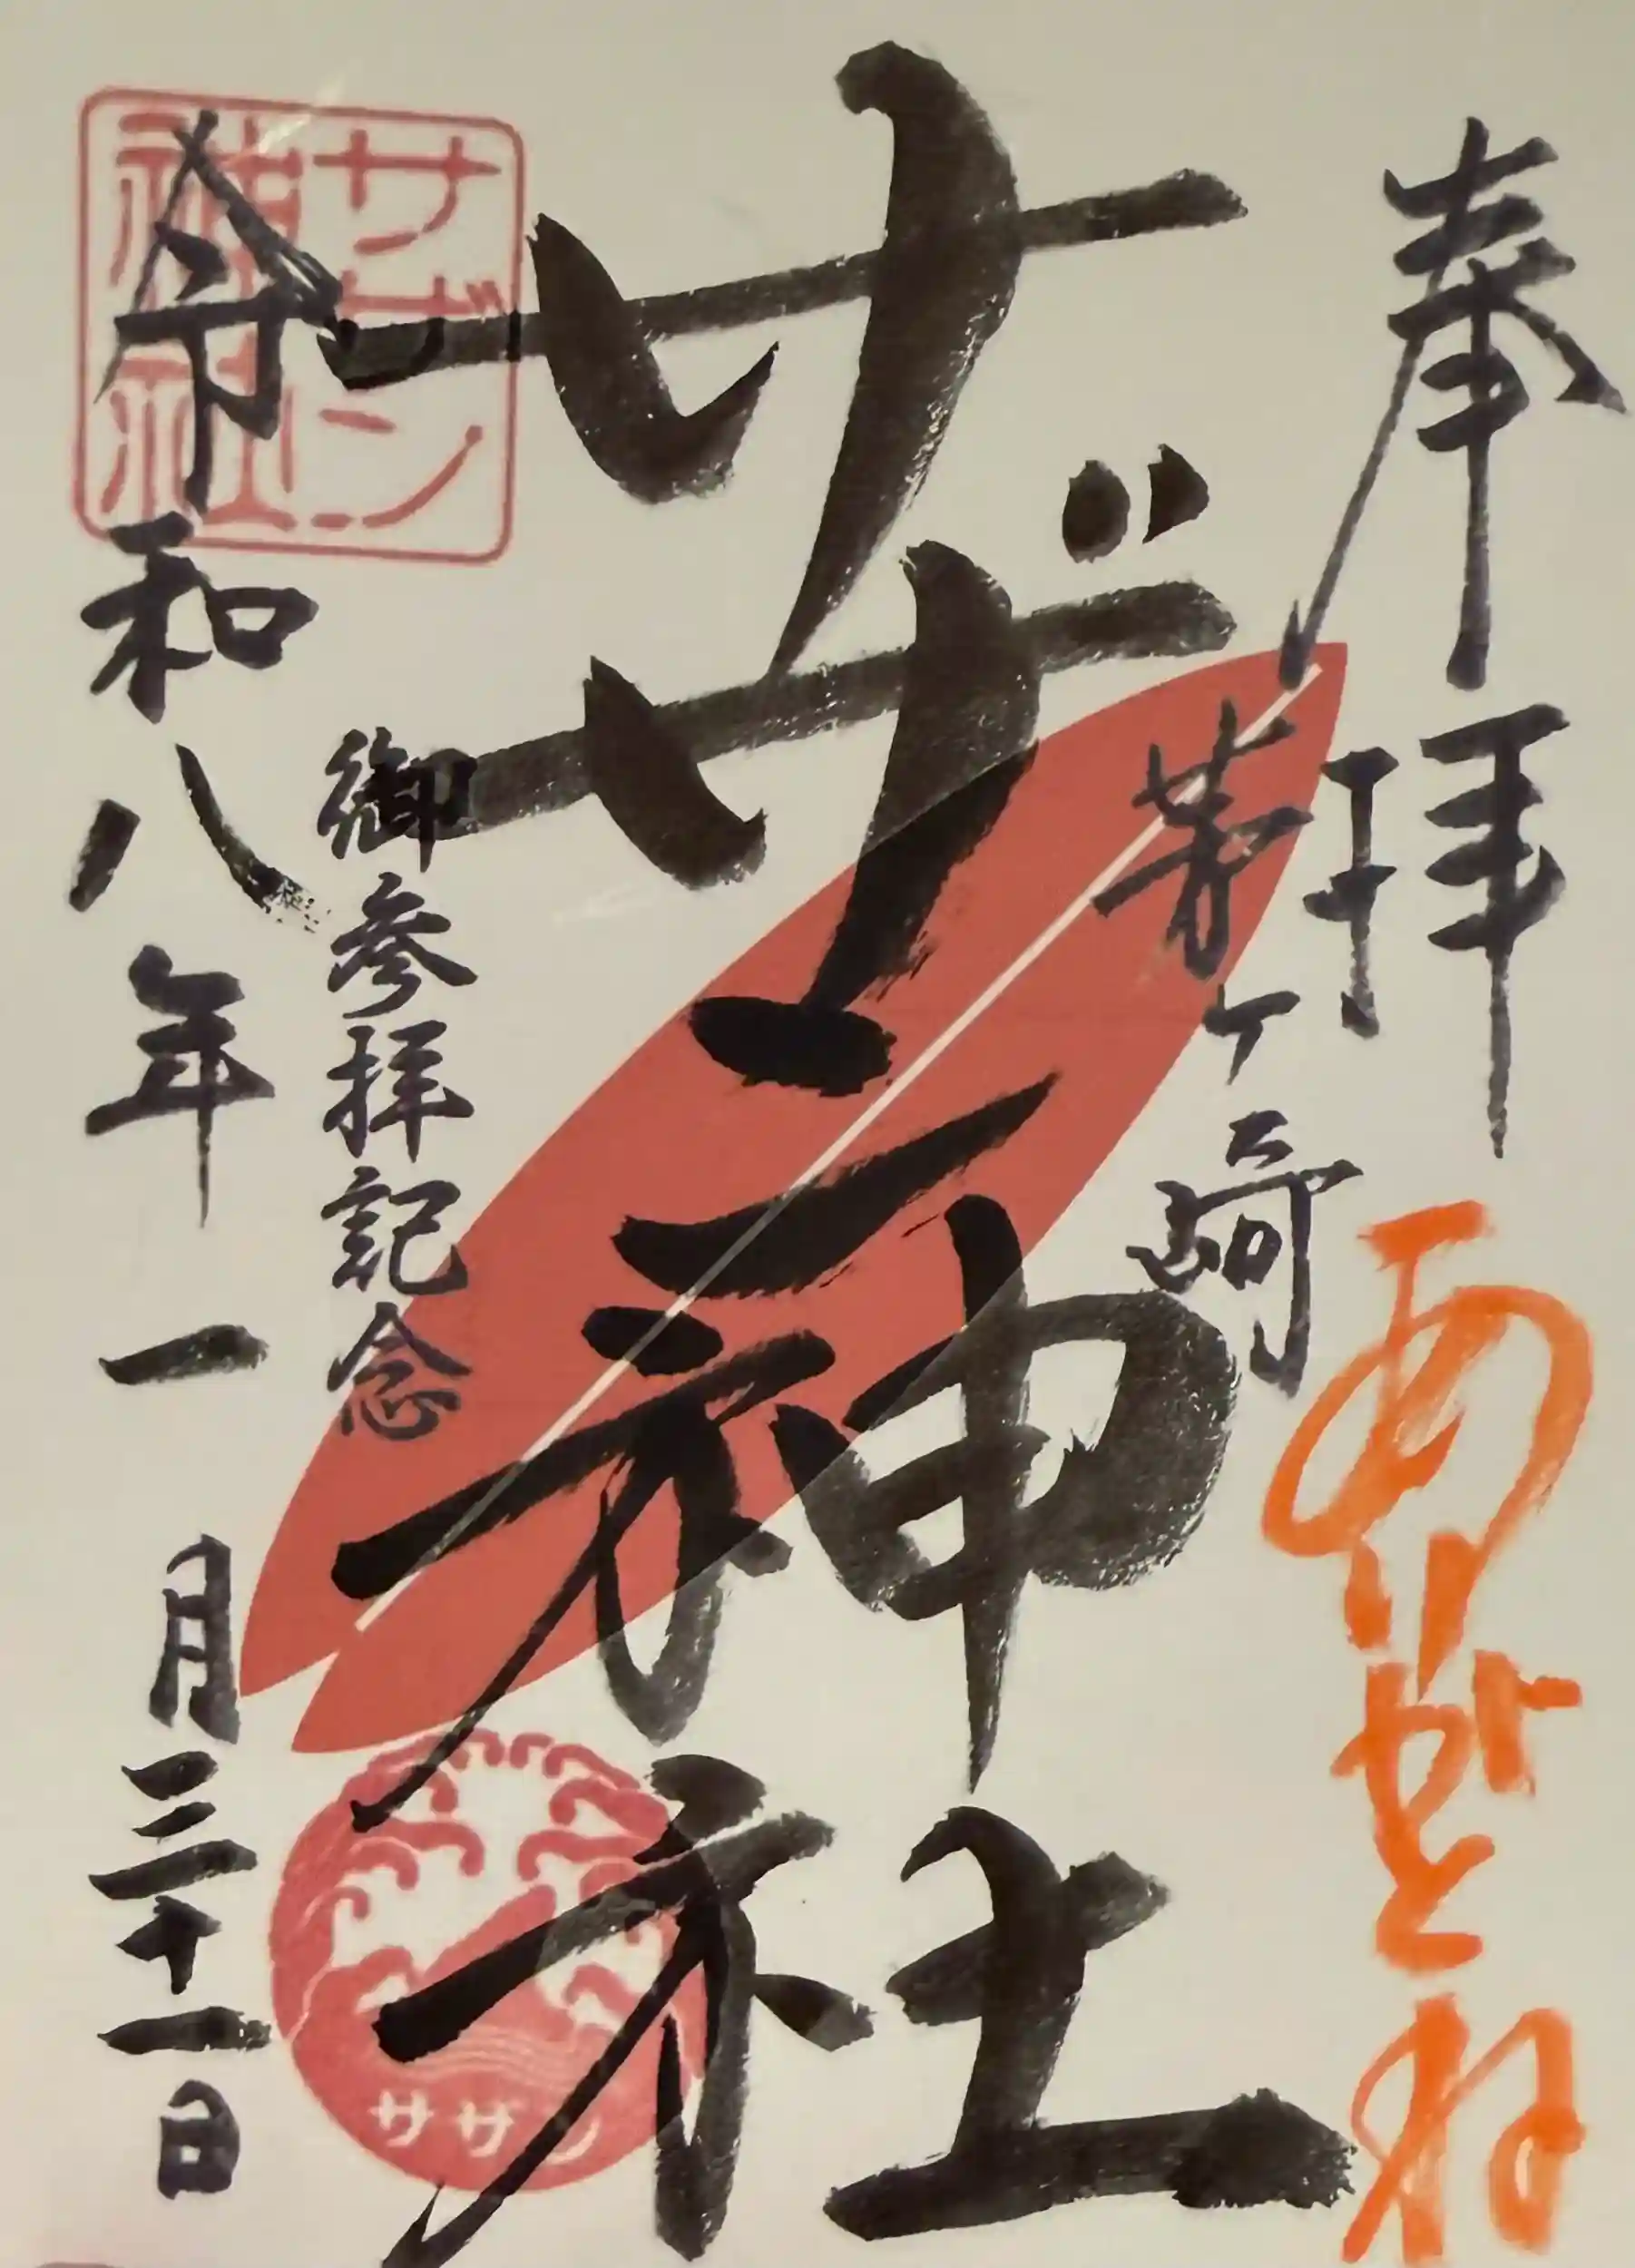 奉拝
ありがとね
于
茅ヶ崎
サザン神社
御参拝記念
令和八年一月三十一日
サザン
神社
サザン